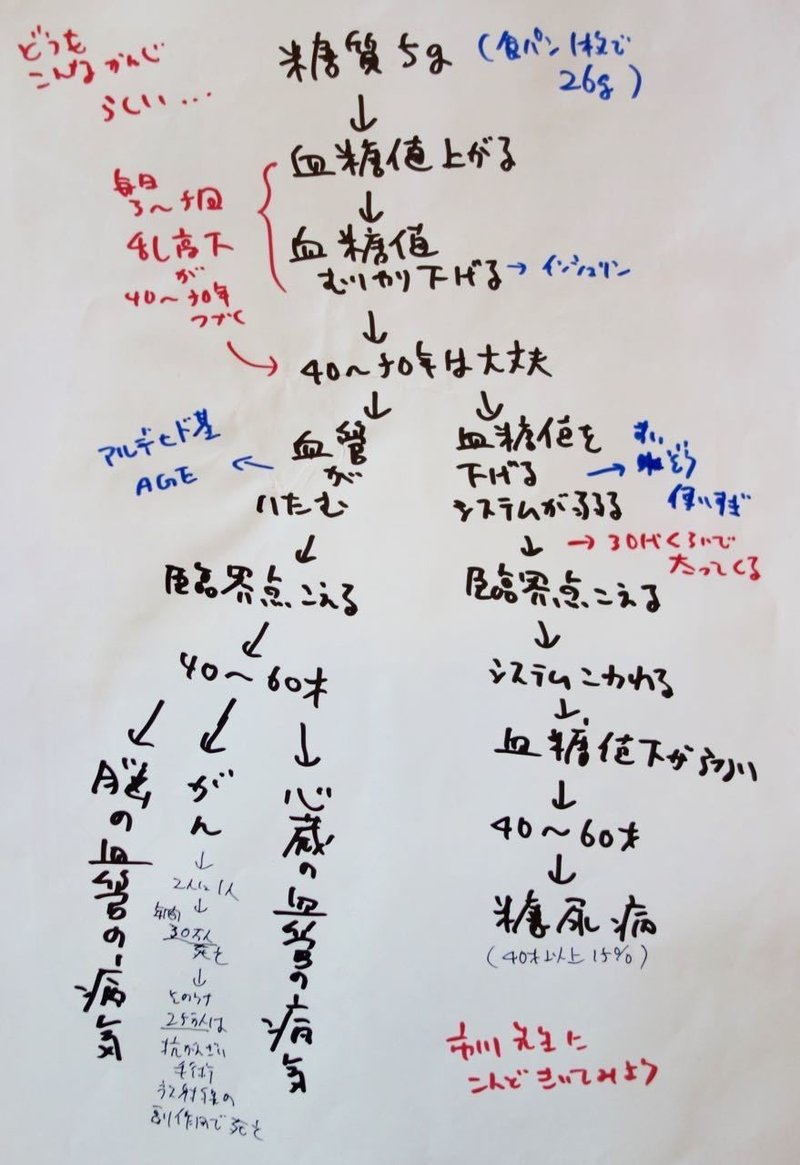 どうも
こんな かんじ
らしい...
糖質5g
(食パン1枚で
26g)
↓
血糖値上がる
↓
血糖値
むりやり下げる → インシュリン
毎日
3〜5回
乱高下
が
40〜50年
つづく
↓
→ 40〜50年は大丈夫
↓
血管
が
いたむ
← アルデヒド基
AGE
↓
臨界点こえる
↓
40〜60才
↓
脳の血管の病気
↓
がん
↓
2人に1人
↓
年間
30万人
死亡
↓
そのうち
25万人は
抗がんざい
手術
放射線の
副作用で死亡
↓
心臓の血管の病気
↓
血糖値を
下げる
システムが弱る
→ すい
ぞう
使いすぎ
→ 30代くらいで
太ってくる
↓
臨界点こえる
↓
システムこわれる
↓
血糖値下がらない
↓
40〜60才
↓
糖尿病
(40才以上15%)
市川先生に
こんどきいてみよう